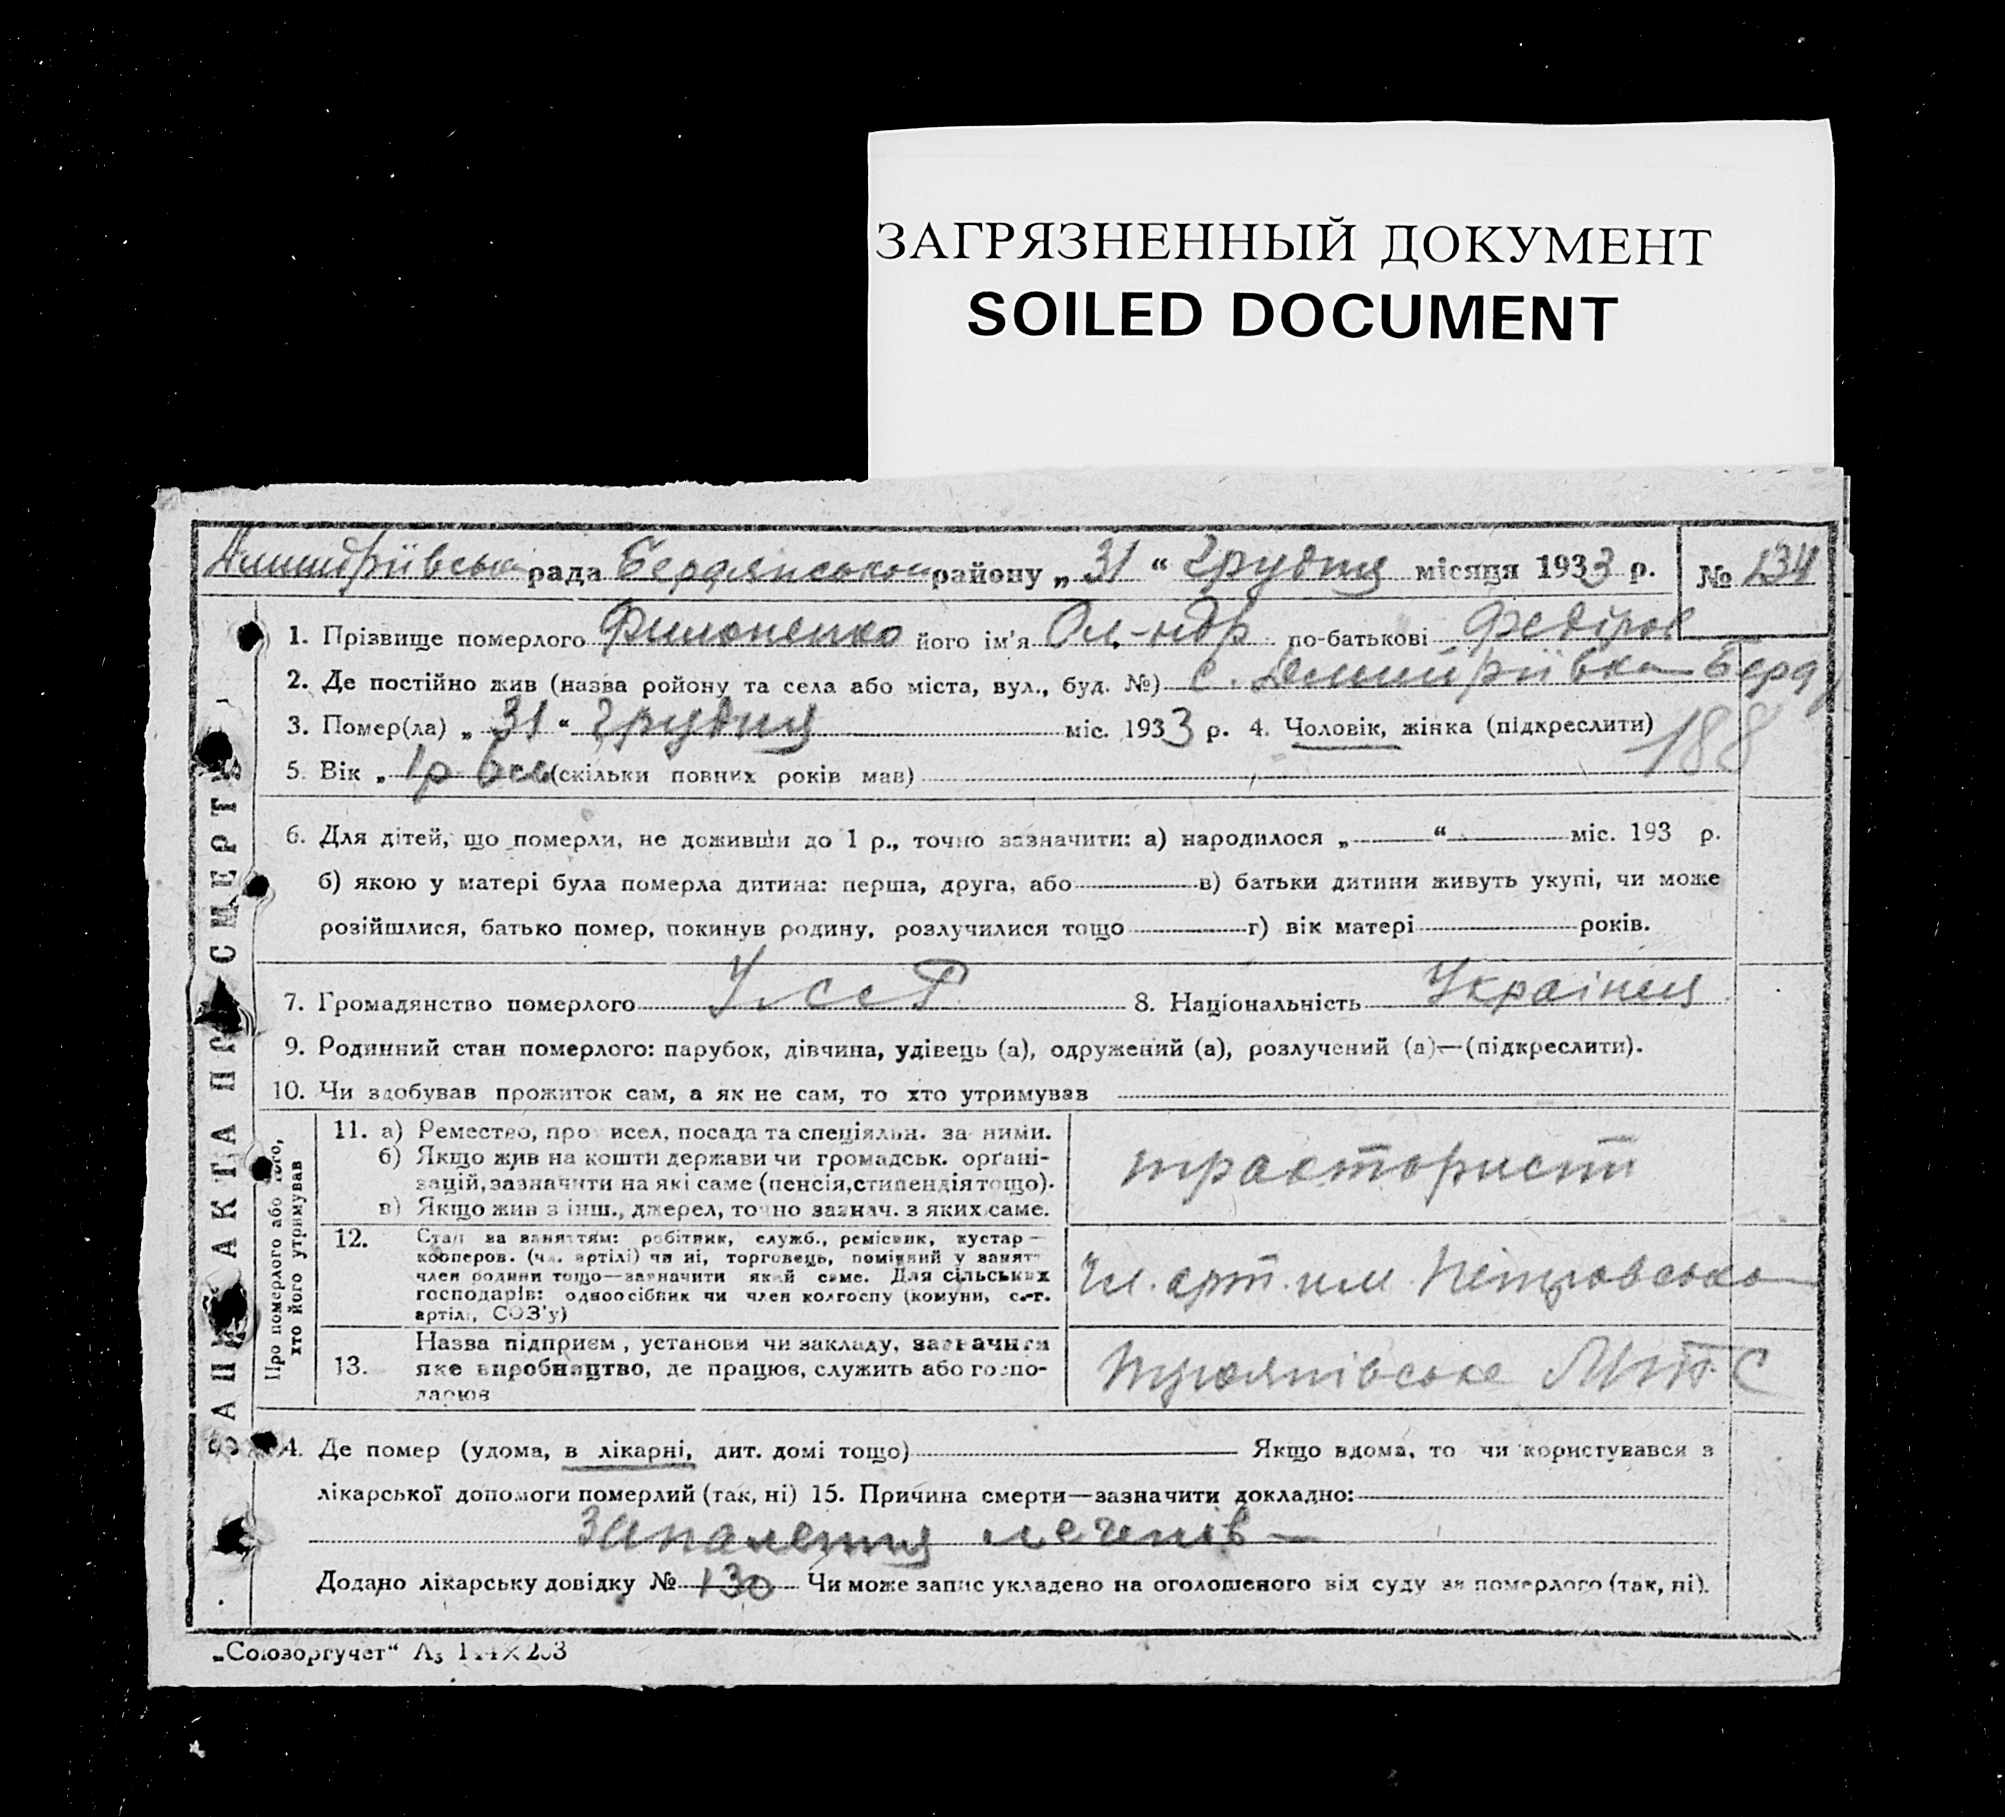 ЗАГРЯЗНЕННЫЙ ДОКУМЕНТ
SOILED DOCUMENT
Дмитріївська рада Бердянського району „ 31 “ Грудня місяця 1933 р. № 134
1. Прізвище померлого Филоненко його ім'я Ол-ндр по-батькові Федіров
2. Де постійно жив (назва ройону та села або міста, вул., буд. №) с. Дмитріївка Берд
3. Помер(ла) „ 31 “ Грудня міс. 1933 р. 4. Чоловік, жінка (підкреслити)
188
5. Вік „ 1р (скільки повних років мав)
6. Для дітей, що померли, не доживши до 1 р., точно зазначити: а) народилося „ “ міс. 193 р.
б) якою у матері була померла дитина: перша, друга, або в) батьки дитини живуть укупі, чи може
розійшлися, батько помер, покинув родину, розлучилися тощо г) вік матері років.
7. Громадянство померлого УССР 8. Національність Українця
9. Родинний стан померлого: парубок, дівчина, удівець (а), одружений (а), розлучений (а)—(підкреслити).
10. Чи здобував прожиток сам, а як не сам, то хто утримував
Про померлого або того,
хто його утримував
11. а) Ремество, про исел, посада та спеціяльн. за ними.
б) Якщо жив на кошти держави чи громадськ. органі-
зацій, зазначити на які саме (пенсія, стипендія тощо).
в) Якщо жив з інш., джерел, точно зазнач. з яких саме.
тракторист
12. Стан за заняттям: робітник, служб., ремісник, кустар—
кооперов. (чл. артілі) чи ні, торговець, помічний у занятт
член родини тощо—зазначити який саме. Для сільських
господарів: одноосібник чи член колгоспу (комуни, с.-г.
артілі, СОЗ'у)
Чл. арт. им. Петровського
13. Назва підприєм , установи чи закладу, зазначити
яке виробництво, де працює, служить або госпо-
дарює
Троянівське МТС
14. Де помер (удома, в лікарні, дит. домі тощо) Якщо вдома, то чи користувався з
лікарської допомоги померлий (так, ні) 15. Причина смерти—зазначити докладно:
Запалення легенів
Додано лікарську довідку № 130 Чи може запис укладено на оголошеного від суду за померлого (так, ні).
ЗАПИС АКТА ПРО СМЕРТЬ
„Союзоргучет“ А₃